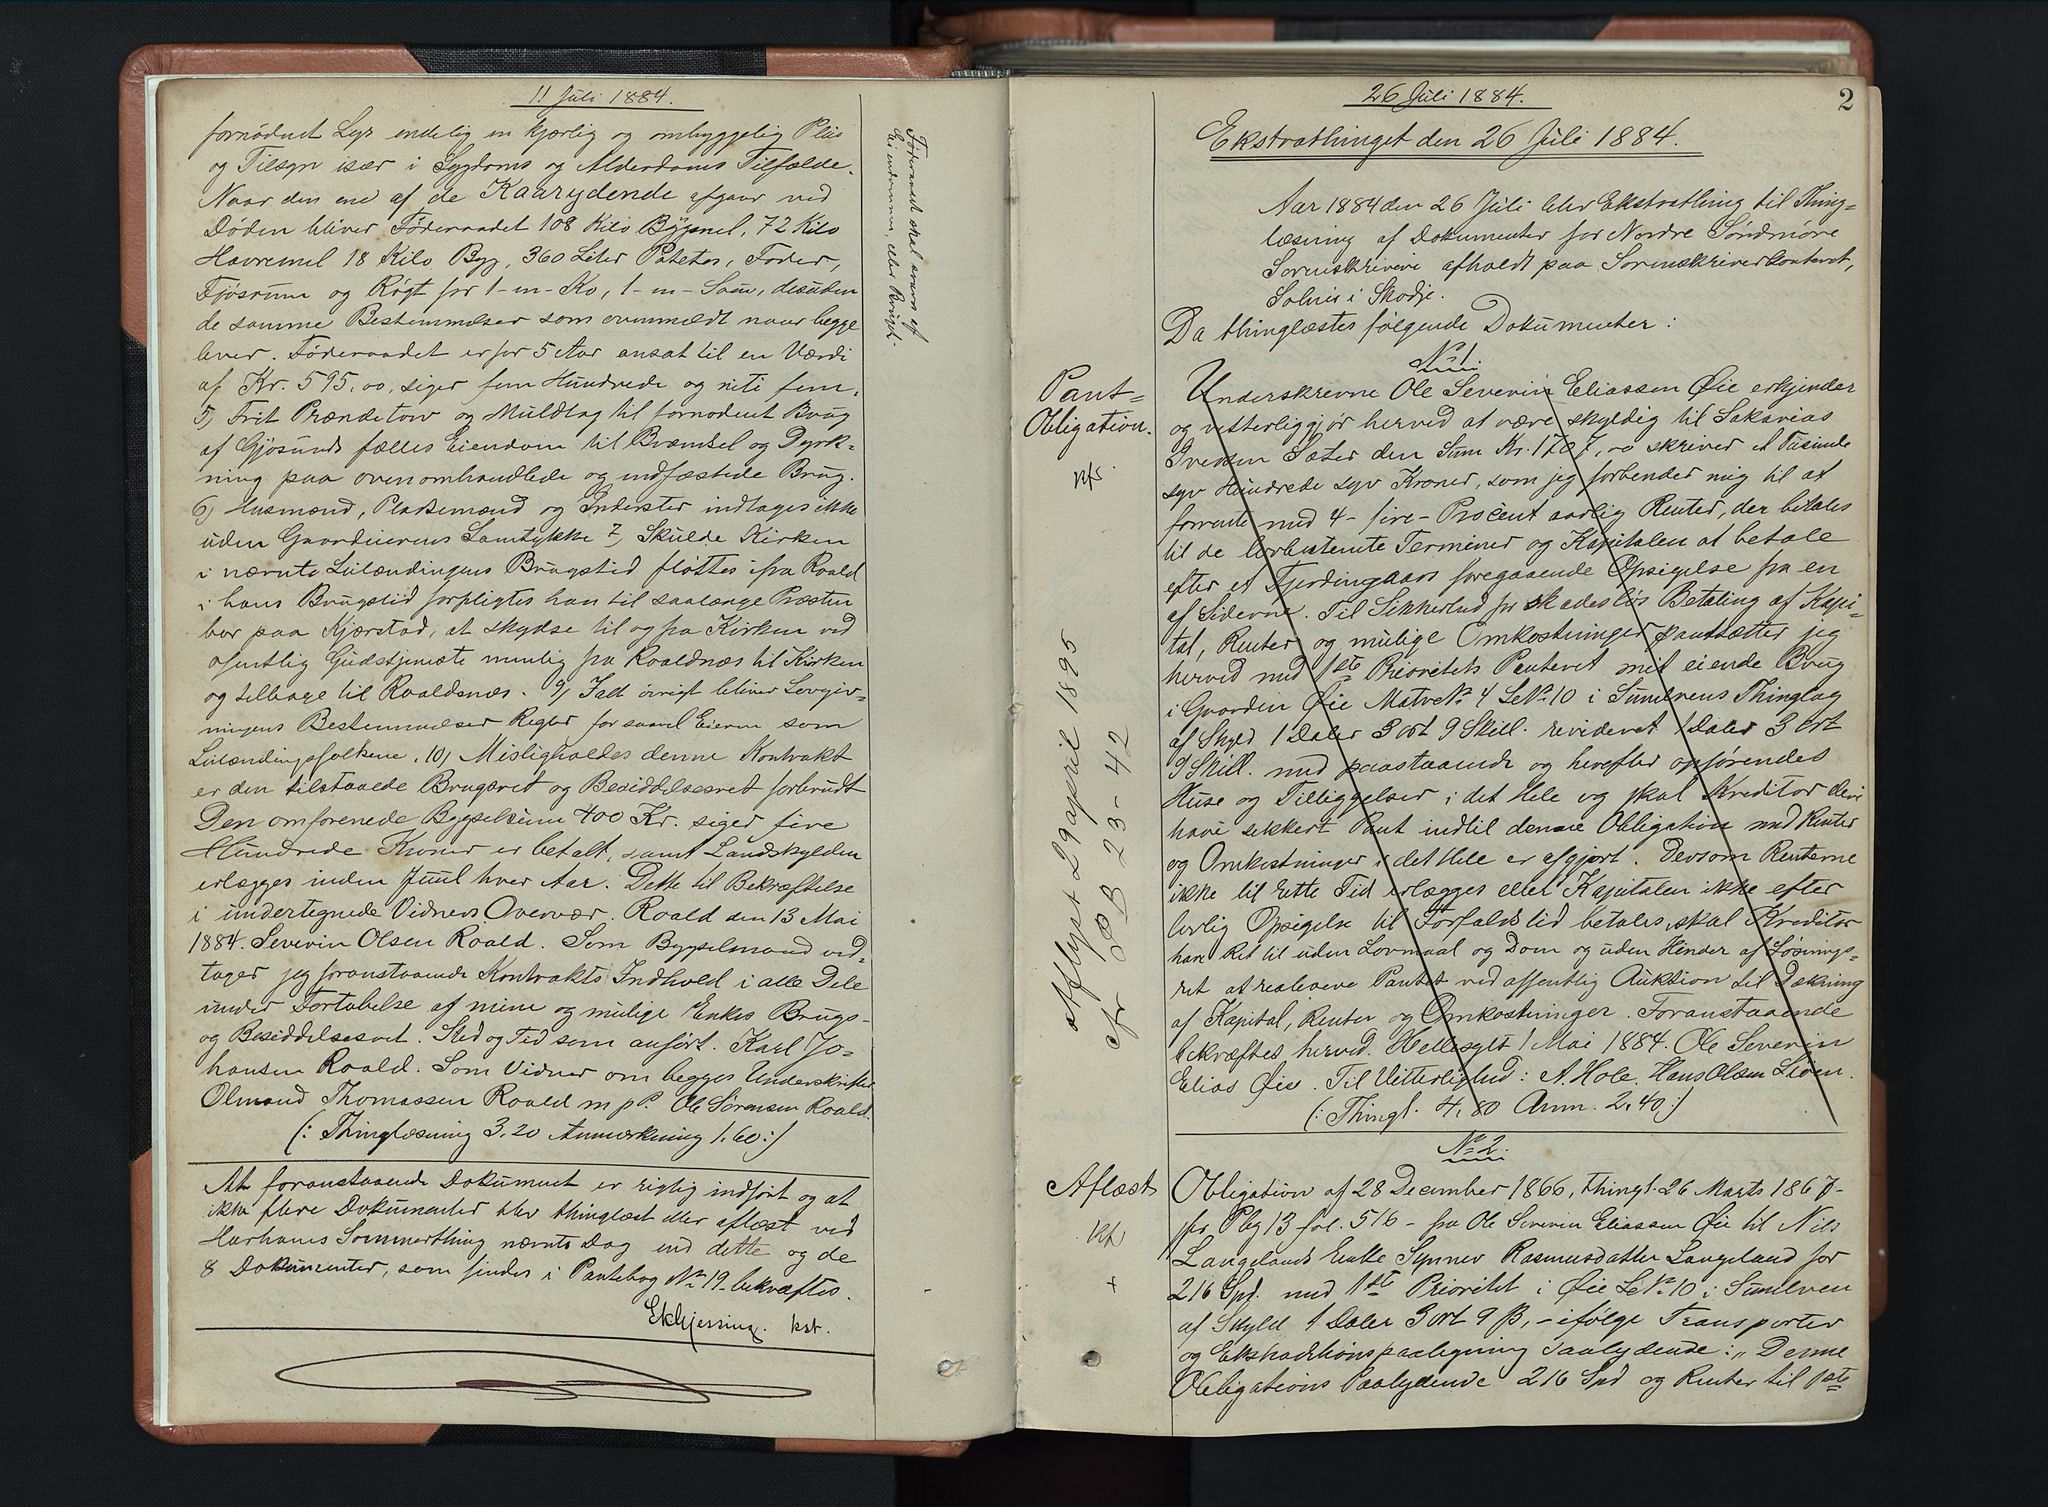 11 Juli 1884.
fornödent Lys endelig en kjærlig og omhyggelig Pleie
og Tilsyn især i Sygdoms og Alderdoms Tilfælde.
Naar den ene af de Kaarydende afgaar ved
Döden bliver Föderaadet 108 Kilo Bygmel, 72 Kilo
Havremel 18 Kilo Byg, 360 Liter Poteter, Foder,
Fjösrum og Rögt for 1-en-Ko, 1-en-Sau, desuden
de samme Bestemmelser som ovenmeldt naar begge
lever. Föderaadet er for 5 Aar ansat til en Værdi
af Kr. 595,00, siger fem Hundrede og niti fem.
5, Frit Brændetorv og Muldtag til fornödent Brug
af Gjösunds fælles Eiendom til Brændsel og Dyrk-
ning paa ovenomhandlede og indfæstede Brug.
6, Husmænd, Pladsemænd og Inderster indtages ikke
uden Gaardeierens Samtykke 7, Skulde Kirken
i nævnte Leilændingens Brugstid flöttes ifra Roald
i hans Brugstid forpligtes han til saalænge Præsten
bor paa Kjærstad, at skydse til og fra Kirken ved
ofentlig Gudstjeneste nemlig fra Roaldnæs til Kirken
og tilbage til Roaldsnæs. 9, I alt övrigt bliver Lovgiv-
ningens Bestemmelser Regler for saavel Eieren som
Leilændingsfolkene. 10, Misligholdes denne Kontrakt
er den tilstaaede Brugsret og Besiddelsesret forbrudt
Den omforenede Bygselsum 400 Kr. siger fire
Hundrede Kroner er betalt, samt Landskylden
erlægges inden Juul hver Aar. Dette til Bekræftelse
i undertegnede Vidners Overvær. Roald den 13 Mai
1884. Severin Olsen Roald. Som Bygselmand ved-
tager jeg foranstaaende Kontrakts Indhold i alle Dele
under Fortabelse af mine og mulige Enkes Brugs-
og Besiddelsesret. Sted og Tid som anfört. Karl Jo-
hansen Roald. Som Vidner om begges Underskrifter
Olmand Thomassen Roald m p P. Ole Sörensen Roald.
(: Thinglæsning 3.20 Anmærkning 1.60:)
At foranstaaende Dokument er rigtig indfört og at
ikke flere Dokumenter blev thinglæst eller aflæst ved
Harhams Sommerthing nævnte Dag end dette og de
8 Dokumenter, som findes i Pantebog No 19 bekræftes.
kst.
Föderaadet skal svares af
Eiendommen, eller Bruget.
26 Juli 1884.
2
Ekstrathinget den 26 Juli 1884.
Aar 1884 den 26 Juli blev Ekstrathing til Thing-
læsning af Dokumenter for Nordre Söndmöre
Sorenskriveri afholdt paa Sorenskriverkontoret,
Solnör i Skodje.
Da thinglæstes følgende Dokumenter:
No 1.
Pant-
Obligation.
Underskrevne Ole Severin Eliassen Öie erkjender
og vitterliggjör herved at være skyldig til Sakarias
Iversen Sæter den Sum Kr. 1707,00 skriver et Tusinde
syv Hundrede syv Kroner, som jeg forbender mig til at
forrente med 4-fire-Procent aarlig Renter, der betales
til de lovbestemte Terminer og Kapitalen at betale
efter et Fjerdingaars foregaaende Opsigelse fra en
af Siderne. Til Sikkerhed for skadeslös Betaling af Kapi-
tal, Renter og mulige Omkostninger pantsætter jeg
herved med 1ste Prioritets Panteret mit eiende Brug
i Gaarden Öie Matr No 4 Le No 10 i Sunelvens Thinglag
af Skyld 1 Daler 3 ort 9 Skill. revideret 1 Daler 3 Ort
9 Skill. med paastaaende og herefter opförendes
Huse og Tilliggelser i det Hele og skal Kreditor deri
have sikkert Pant indtil denne Obligation med Renter
og Omkostninger i det Hele er afgjort. Dersom Renterne
ikke til Rette Tid erlægges eller Kapitalen ikke efter
lovlig Opsigelse til Forfaldstid betales, skal Kreditor
have Ret til uden Lovmaal og Dom og uden Hinder af Lösnings-
ret at realisere Pantet ved offentlig Auktion til Dækning
af Kapital, Renter og Omkostninger. Foranstaaende
bekræftes herved. Hellesylt 1 Mai 1884. Ole Severin
Elias Öie. Til Vitterlighed: A. Hole. Hans Olsen Liöen.
(: Thingl. 4.80 Anm. 2.40:)
Afflyst 29 april 1895
cfr DB 23-42
No 2.
Aflæst
Obligation af 28 December 1866, Thingl. 26 Marts 1867-
jfr Pbg 13 fol. 516 - fra Ole Severin Eliassen Öie til Nils
Langelands Enke Synnev Rasmusdatter Langeland for
216 Spd. med 1ste Prioritet i Öie Le No 10 i Sunelven
af Skyld 1 Daler 3 ort 9 ß, - ifölge Transporter
og Ekstraditionspaategning saalydende: „Denne
Obligations Paalydende 216 Spd og Renter til 1ste